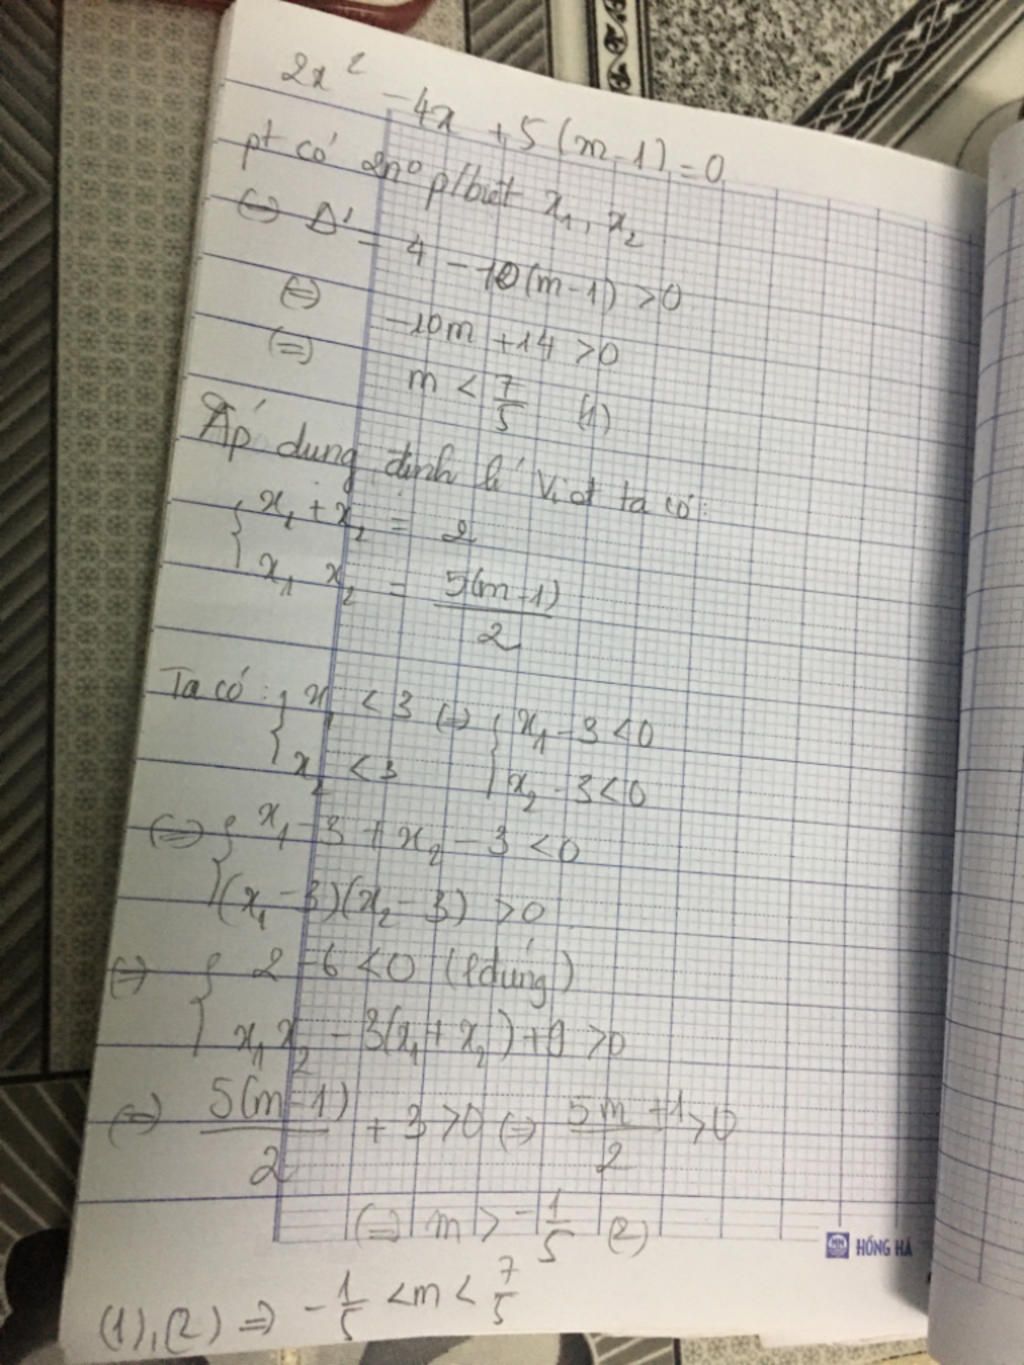 2x² - 4x + 5(m-1) = 0
pt có 2n⁰ p/biệt x₁, x₂
(=) Δ' = 4 - 10(m-1) > 0
(=) -10m + 14 > 0
(=) m < 7/5 (1)
Áp dụng định lí Viet ta có:
{ x₁ + x₂ = 2
{ x₁ x₂ = 5(m-1)/2
Ta có: { x₁ < 3 (=) { x₁ - 3 < 0
{ x₂ < 3 { x₂ - 3 < 0
(=) { x₁ - 3 + x₂ - 3 < 0
{ (x₁ - 3)(x₂ - 3) > 0
(=) { 2 - 6 < 0 (lđúng)
{ x₁ x₂ - 3(x₁ + x₂) + 9 > 0
(=) 5(m-1)/2 + 3 > 0 (=) 5m + 1/2 > 0
(=) m > -1/5 (2)
HỒNG HÀ
(1),(2) => -1/5 < m < 7/5